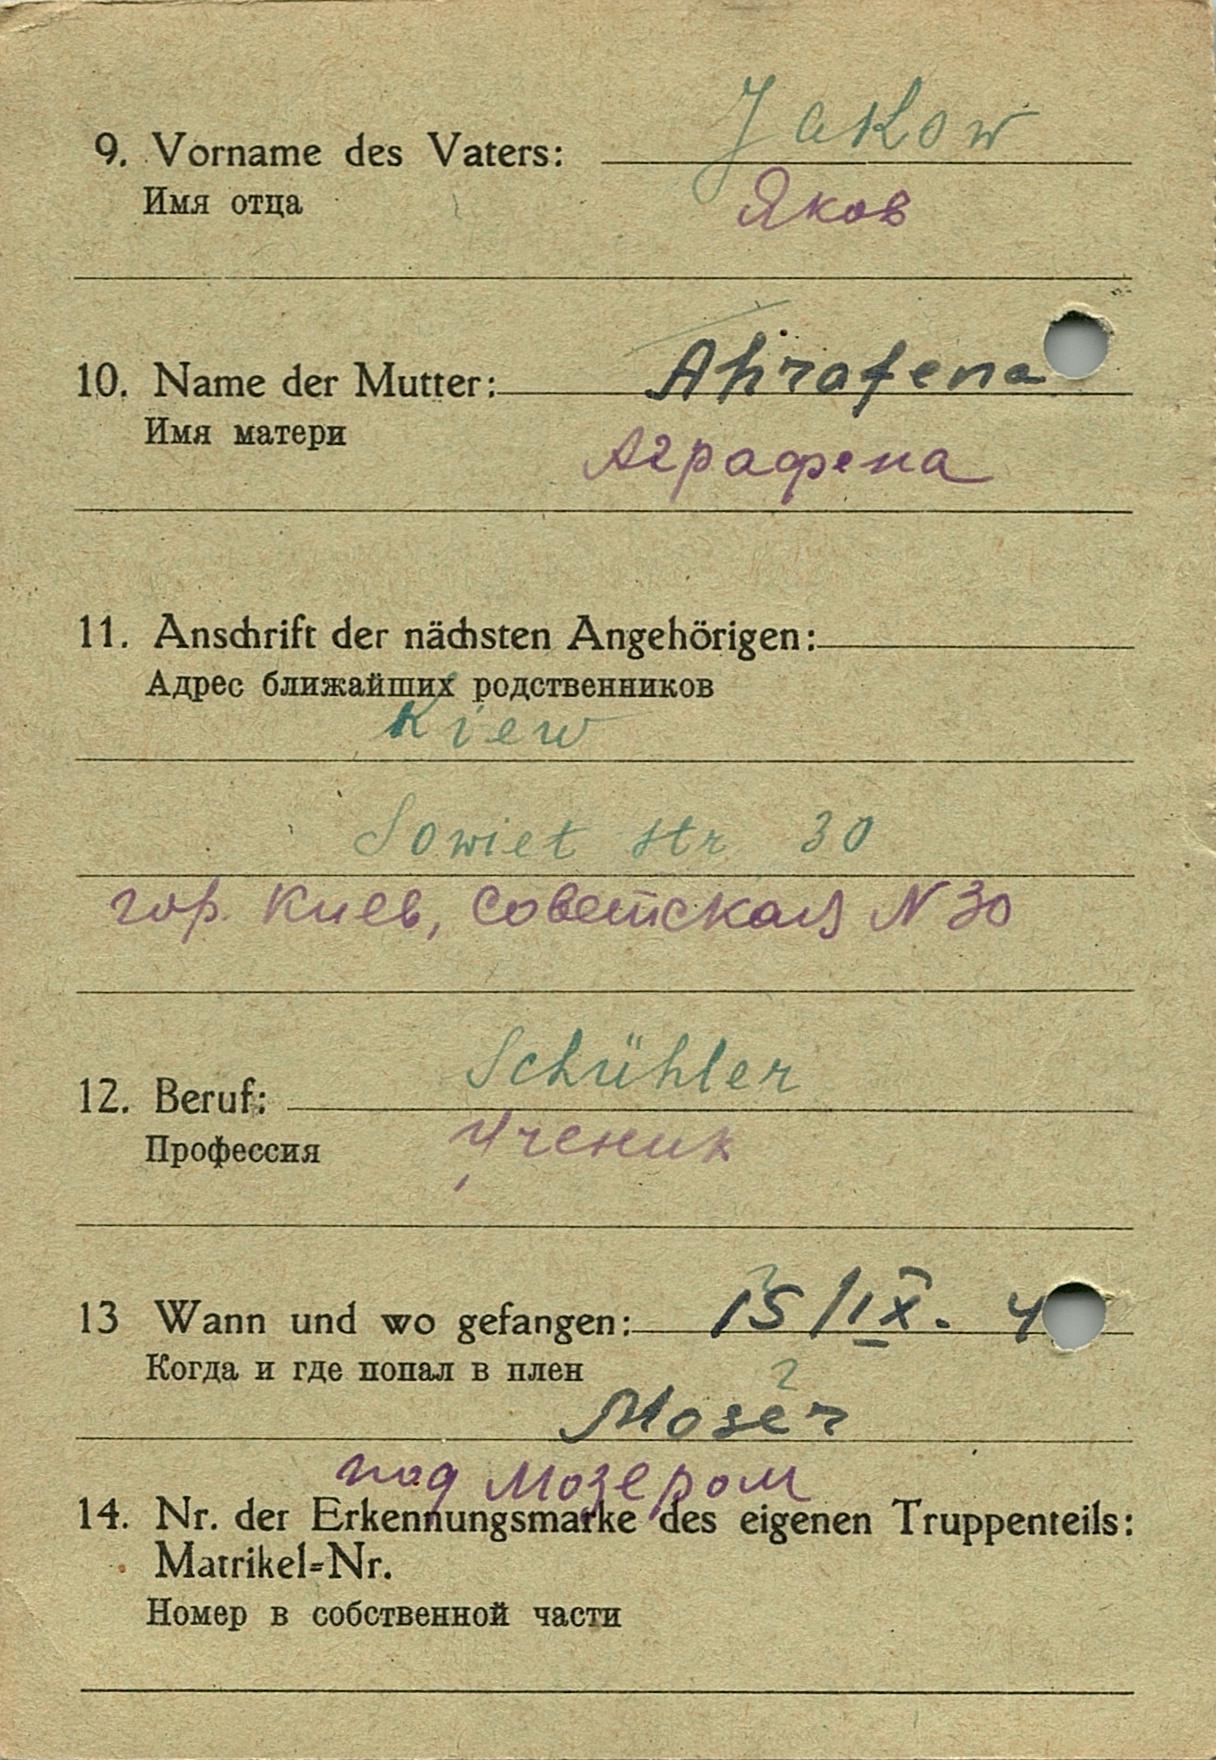 9. Vorname des Vaters: Jakow
Имя отца Яков
10. Name der Mutter: Ahrafena
Имя матери
Аграфена
11. Anschrift der nächsten Angehörigen:
Адрес ближайших родственников
Kiew
Sowiet str 30
гор. Киев, Советская N 30
12. Beruf: Schühler
Профессия Ученик
13 Wann und wo gefangen: 15/IX. 4
Когда и где попал в плен
Moser
под Мозером
14. Nr. der Erkennungsmarke des eigenen Truppenteils:
Matrikel-Nr.
Номер в собственной части